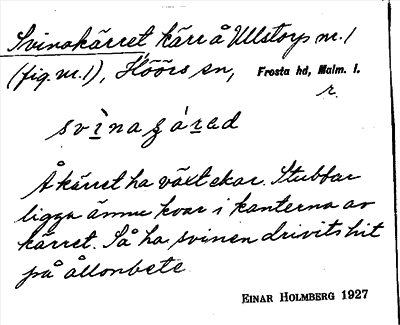 Svinakärret kärr å Ullstorp nr. 1
(fig. nr. 1), Höörs sn, Frosta hd, Malm. l.
r.
svìnaʒárəd
Å kärret ha växt ekar. Stubbar
ligga ännu kvar i kanterna av
kärret. Så ha svinen drivits hit
på ållonbete.
EINAR HOLMBERG 1927